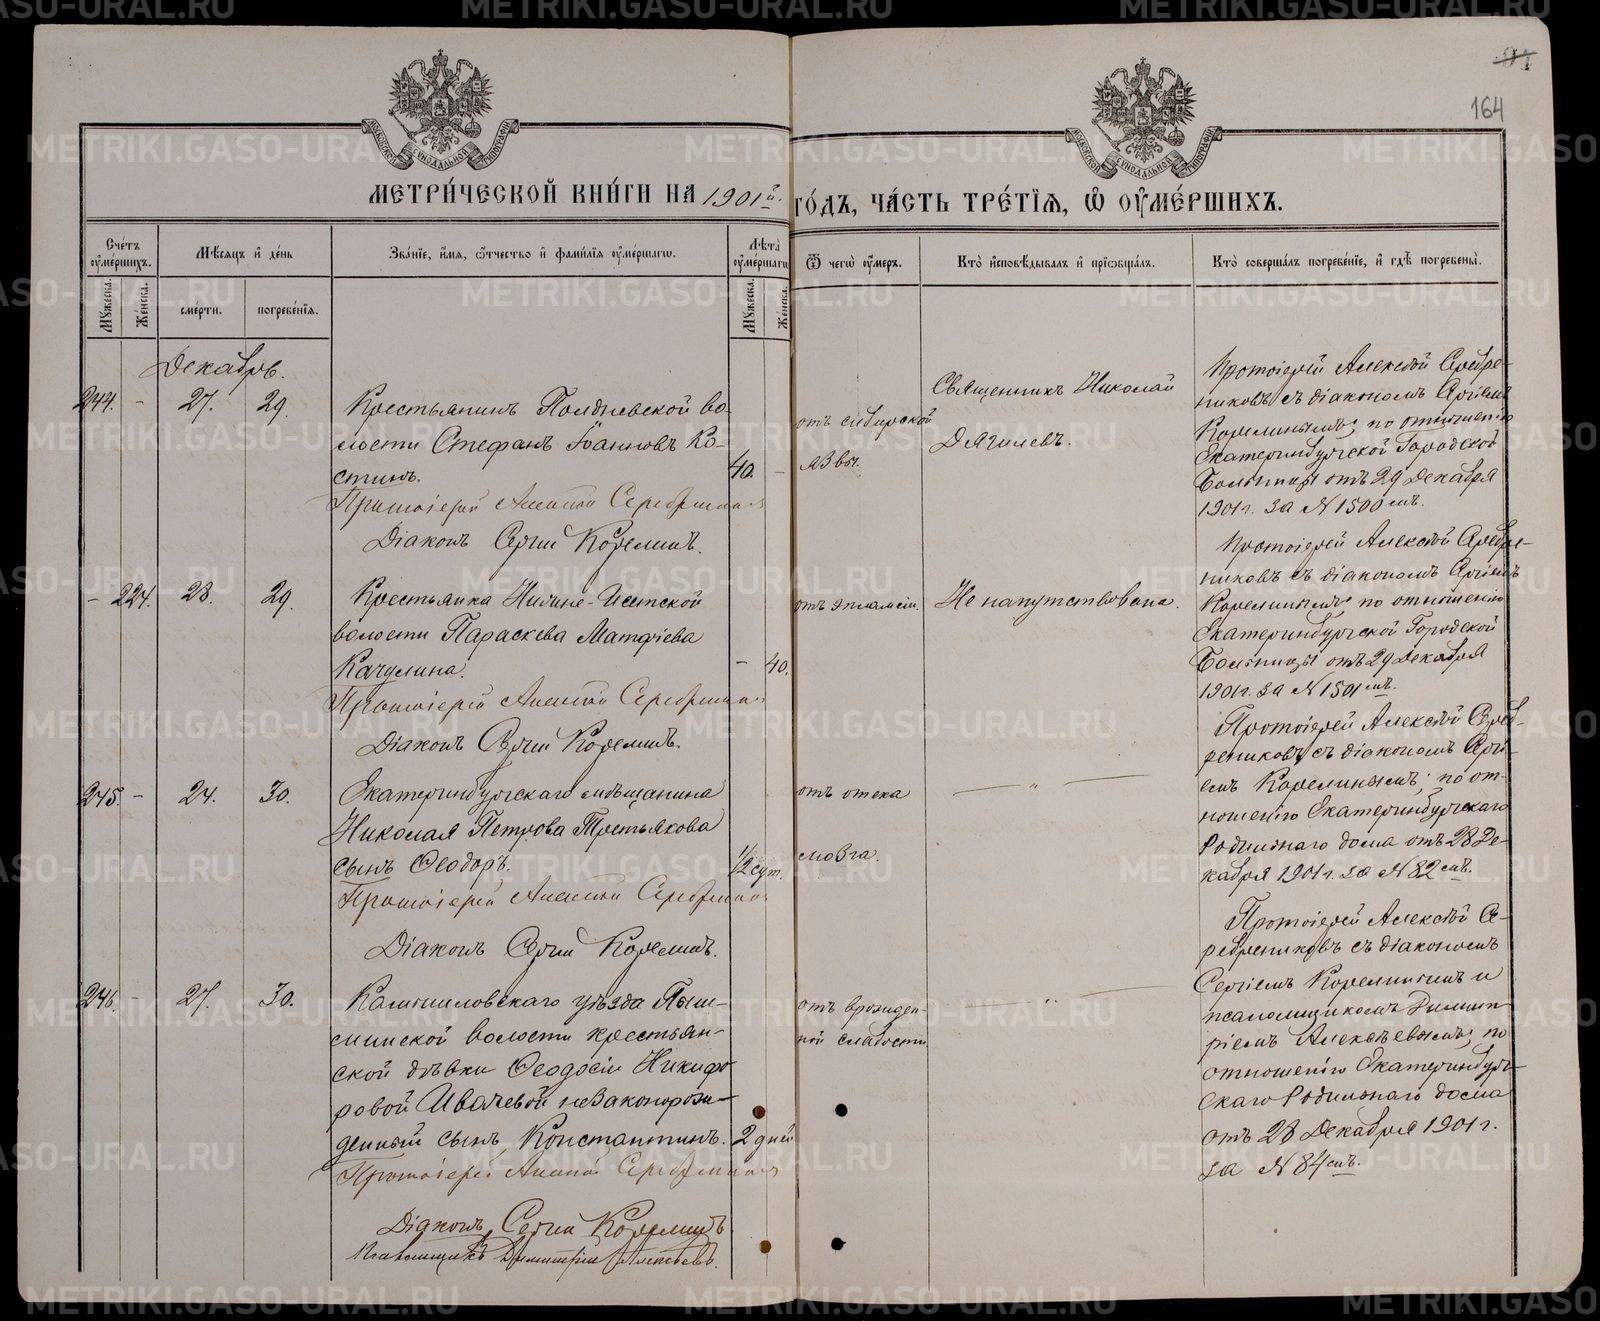 91
164
МОСКОВСКОЙ СѴНОДАЛЬНОЙ ТИПОГРАФІИ
МОСКОВСКОЙ СѴНОДАЛЬНОЙ ТИПОГРАФІИ
МЕТРИ́ЧЕСКОЙ КНИ́ГИ НА 1901й. ГО́ДЪ, ЧА́СТЬ ТРЕ́ТІѦ, Ѡ ОУМЕ́РШИХЪ.
Сче́тъ оуме́ршихъ.
Мѣсяцъ и де́нь
Зва́ніе, и́мя, ѻтчество и фами́лія оуме́ршагѡ.
Лѣта̀ оуме́ршагѡ
Ѿ чегѡ̀ оу́меръ.
Кто̀ исповѣ́дывалъ и пріѡбща́лъ.
Кто̀ соверша́лъ погребе́ніе, и гдѣ̀ погребены̀.
Му́жеска.
Же́нска.
сме́рти.
погребе́нія.
Му́жеска.
Же́нска.
Декабрь.
244. - 27. 29.
Крестьянинъ Полдневской во-
лости Стефанъ Іоанновъ Ко-
стинъ.
40. -
Протоіерей Алексій Серебренников
Діаконъ Сергій Корелинъ.
отъ сибирской
язвы.
Священникъ Николай
Дягилевъ.
Протоіерей Алексѣй Сребре-
никовъ съ діакономъ Сергіемъ
Корелинымъ; по отношенію
Екатеринбургской Городской
Больницы отъ 29 Декабря
1901 г. за № 1500 мъ.
- 224. 28. 29.
Крестьянка Нижне-Исетской
волости Параскева Матфіева
Качулина.
- 40.
Протоіерей Алексій Серебренников
Діаконъ Сергій Корелинъ.
отъ эпламсіи.
Не напутствована.
Протоіерей Алексѣй Сребре-
никовъ съ діакономъ Сергіемъ
Корелинымъ по отношенію
Екатеринбургской Городской
Больницы отъ 29 Декабря
1901 г. за № 1501 мъ.
245. - 24. 30.
Екатеринбургскаго мѣщанина
Николая Петрова Третьякова
сынъ Ѳеодоръ.
1/2 сут.
Протоіерей Алексій Серебренников
Діаконъ Сергій Корелинъ.
отъ отека
мозга.
— " —
Протоіерей Алексѣй Среб-
рениковъ съ діакономъ Сергі-
емъ Корелинымъ; по от-
ношенію Екатеринбургскаго
Родильнаго дома отъ 28 Де-
кабря 1901 г. за № 82 мъ.
246. - 27. 30.
Камышловскаго уѣзда Пыш-
минской волости крестьян-
ской дѣвки Ѳеодосіи Никифо-
ровой Ивачевой незаконорож-
денный сынъ Константинъ.
2 дней
Протоіерей Алексій Серебренников
Діаконъ Сергій Корелинъ
Псаломщикъ Димитрій Алексѣевъ.
отъ врожден-
ной слабости.
— " —
Протоіерей Алексѣй Се-
ребрениковъ съ діакономъ
Сергіемъ Корелинымъ и
псаломщикомъ Димит-
ріемъ Алексѣевымъ; по
отношенію Екатеринбург-
скаго Родильнаго дома
отъ 28 Декабря 1901 г.
за № 84 мъ.
METRIKI.GASO-URAL.RU